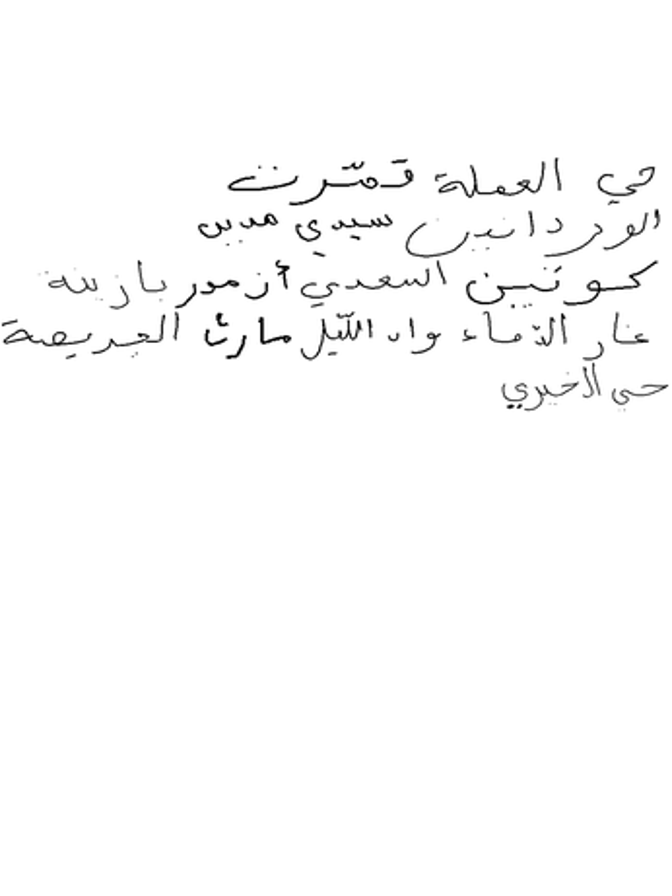 حي العملة قمّرت
الوردانين سيدي مدين
كوتين السعدي أزمور بازينة
غار الدّماء واد اللّيل مارث الجريصة
حي الخيري